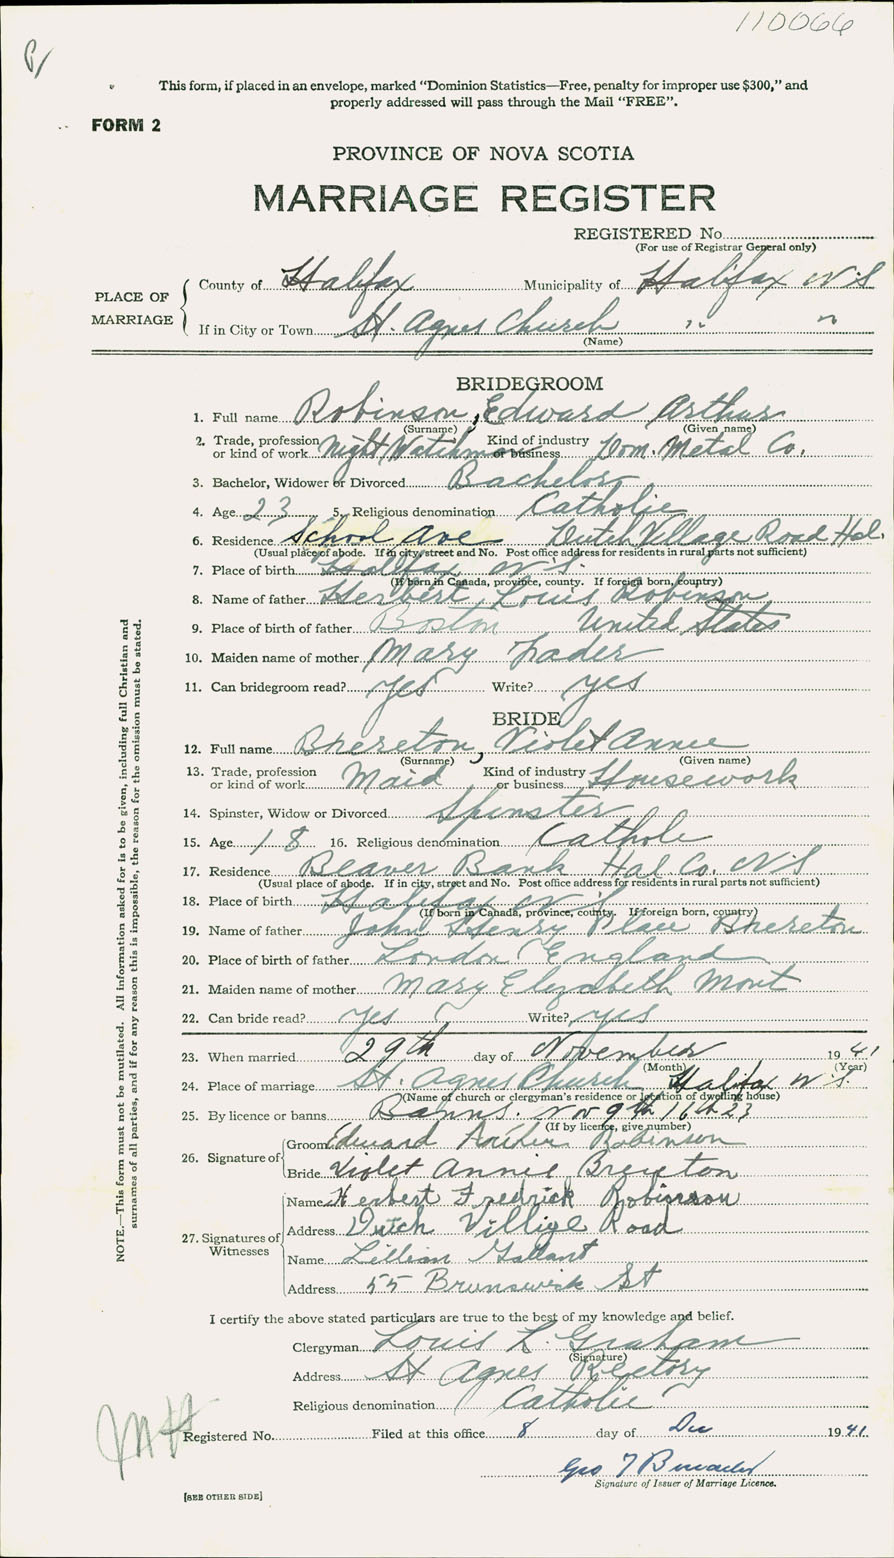 110066
This form, if placed in an envelope, marked “Dominion Statistics—Free, penalty for improper use $300,” and
properly addressed will pass through the Mail “FREE”.
FORM 2
PROVINCE OF NOVA SCOTIA
MARRIAGE REGISTER
REGISTERED No.
(For use of Registrar General only)
PLACE OF MARRIAGE
County of Halifax Municipality of Halifax N S
If in City or Town St. Agnes Church " "
(Name)
BRIDEGROOM
1. Full name Robinson, Edward Arthur
(Surname) (Given name)
2. Trade, profession or kind of work Night Watchman Kind of industry or business Dom. Metal Co.
3. Bachelor, Widower or Divorced Bachelor
4. Age 23 5. Religious denomination Catholic
6. Residence School Ave Dutch Village Road Hal.
(Usual place of abode. If in city, street and No. Post office address for residents in rural parts not sufficient)
7. Place of birth Halifax N.S.
(If born in Canada, province, county. If foreign born, country)
8. Name of father Herbert Louis Robinson
9. Place of birth of father Boston United States
10. Maiden name of mother Mary Frader
11. Can bridegroom read? yes Write? yes
BRIDE
12. Full name Brereton, Violet Annie
(Surname) (Given name)
13. Trade, profession or kind of work Maid Kind of industry or business Housework
14. Spinster, Widow or Divorced Spinster
15. Age 18 16. Religious denomination Cathole
17. Residence Beaver Bank Hal Co. N S
(Usual place of abode. If in city, street and No. Post office address for residents in rural parts not sufficient)
18. Place of birth Halifax N S
(If born in Canada, province, county. If foreign born, country)
19. Name of father John Henry Place Brereton
20. Place of birth of father London England
21. Maiden name of mother Mary Elezabeth Mont
22. Can bride read? yes Write? yes
23. When married 29th day of November 1941
(Month) (Year)
24. Place of marriage St. Agnes Church Halifax N.S.
(Name of church or clergyman's residence or location of dwelling house)
25. By licence or banns Banns. Nov 9th 16th 23
(If by licence, give number)
26. Signature of Groom Edward Arthur Robinson
Bride Violet Annie Brereton
27. Signatures of Witnesses
Name Herbert Fredrick Robinson
Address Dutch Villige Road
Name Lillian Gallant
Address 55 Brunswick St
I certify the above stated particulars are true to the best of my knowledge and belief.
Clergyman Louis L. Graham
(Signature)
Address St Agnes Rectory
Religious denomination Catholic
Registered No. Filed at this office 8 day of Dec 1941.
Geo T
Signature of Issuer of Marriage Licence.
[SEE OTHER SIDE]
NOTE.—This form must not be mutilated. All information asked for is to be given, including full Christian and
surnames of all parties, and if for any reason this is impossible, the reason for the omission must be stated.